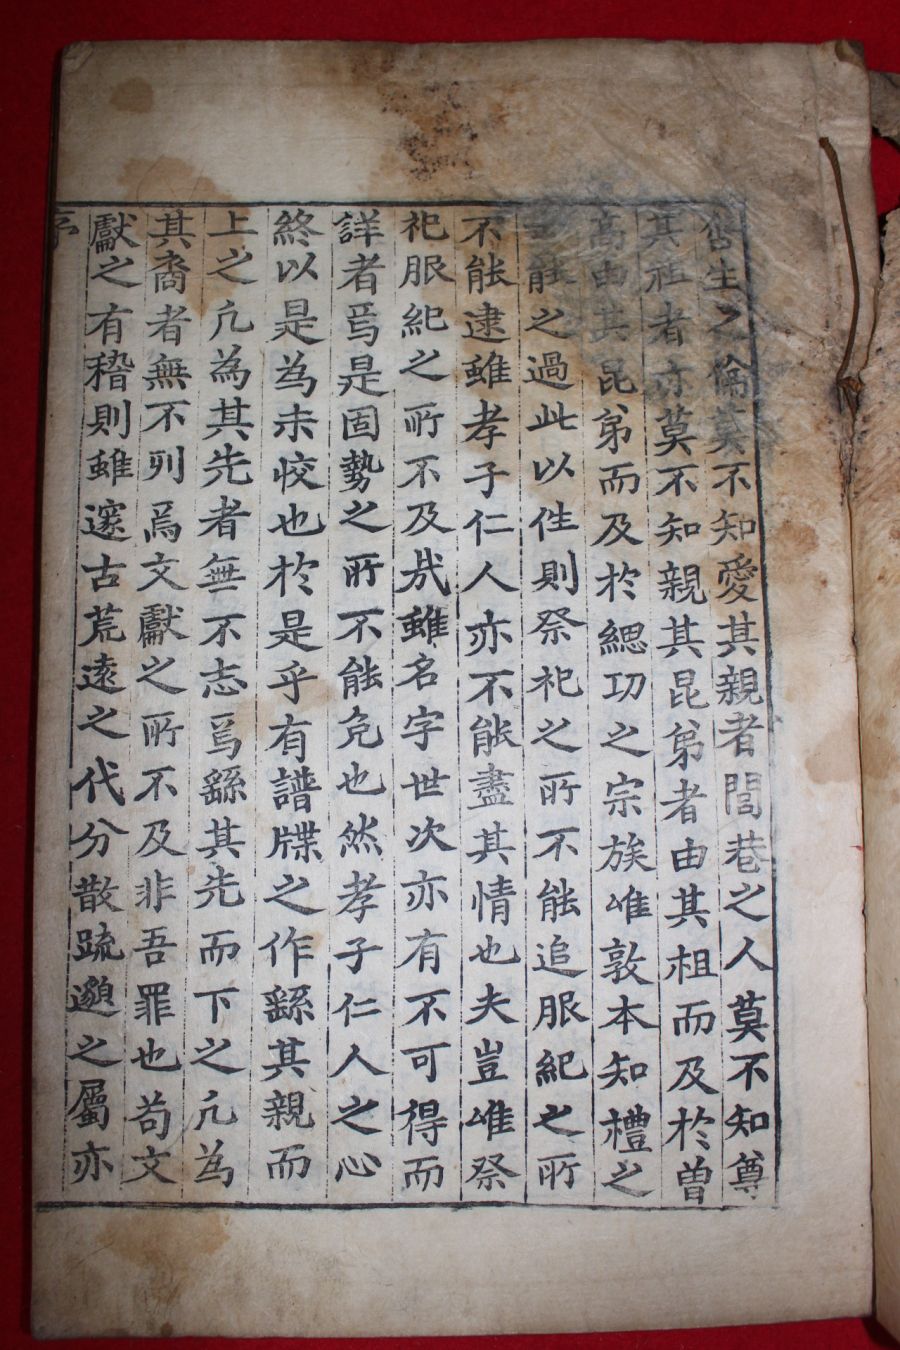 含生之倫莫不知愛其親者閭巷之人莫不知尊
其祖者亦莫不知親其昆弟者由其祖而及於曾
高由其昆弟而及於緦功之宗族唯敦本知禮之
士能之過此以徃則祭祀之所不能追服紀之所
不能逮雖孝子仁人亦不能盡其情也夫豈唯祭
祀服紀之所不及㢤雖名字世次亦有不可得而
詳者焉是固勢之所不能免也然孝子仁人之心
終以是為未恔也於是乎有譜牒之作繇其親而
上之凢為其先者無不志焉繇其先而下之凢為
其裔者無不列焉文獻之所不及非吾罪也苟文
獻之有稽則雖邃古荒逺之代分散䟽邈之屬亦
序